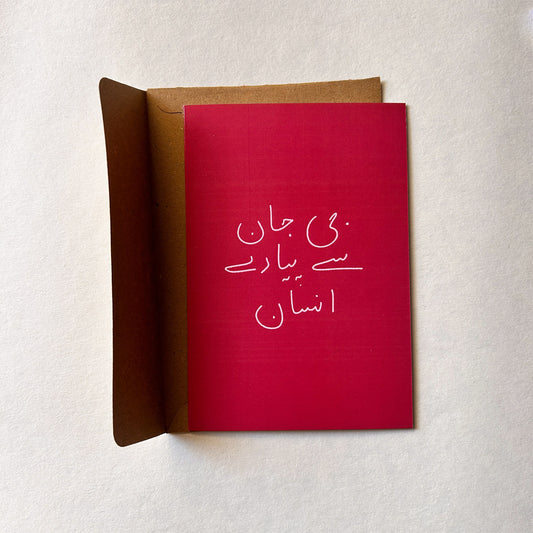 جی جان
سے پیارے
انسان